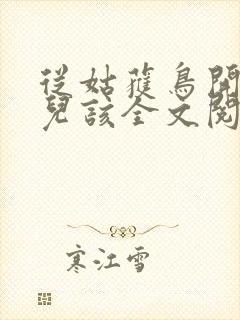 從姑獲鳥開
兒該全文閱
寒江雪